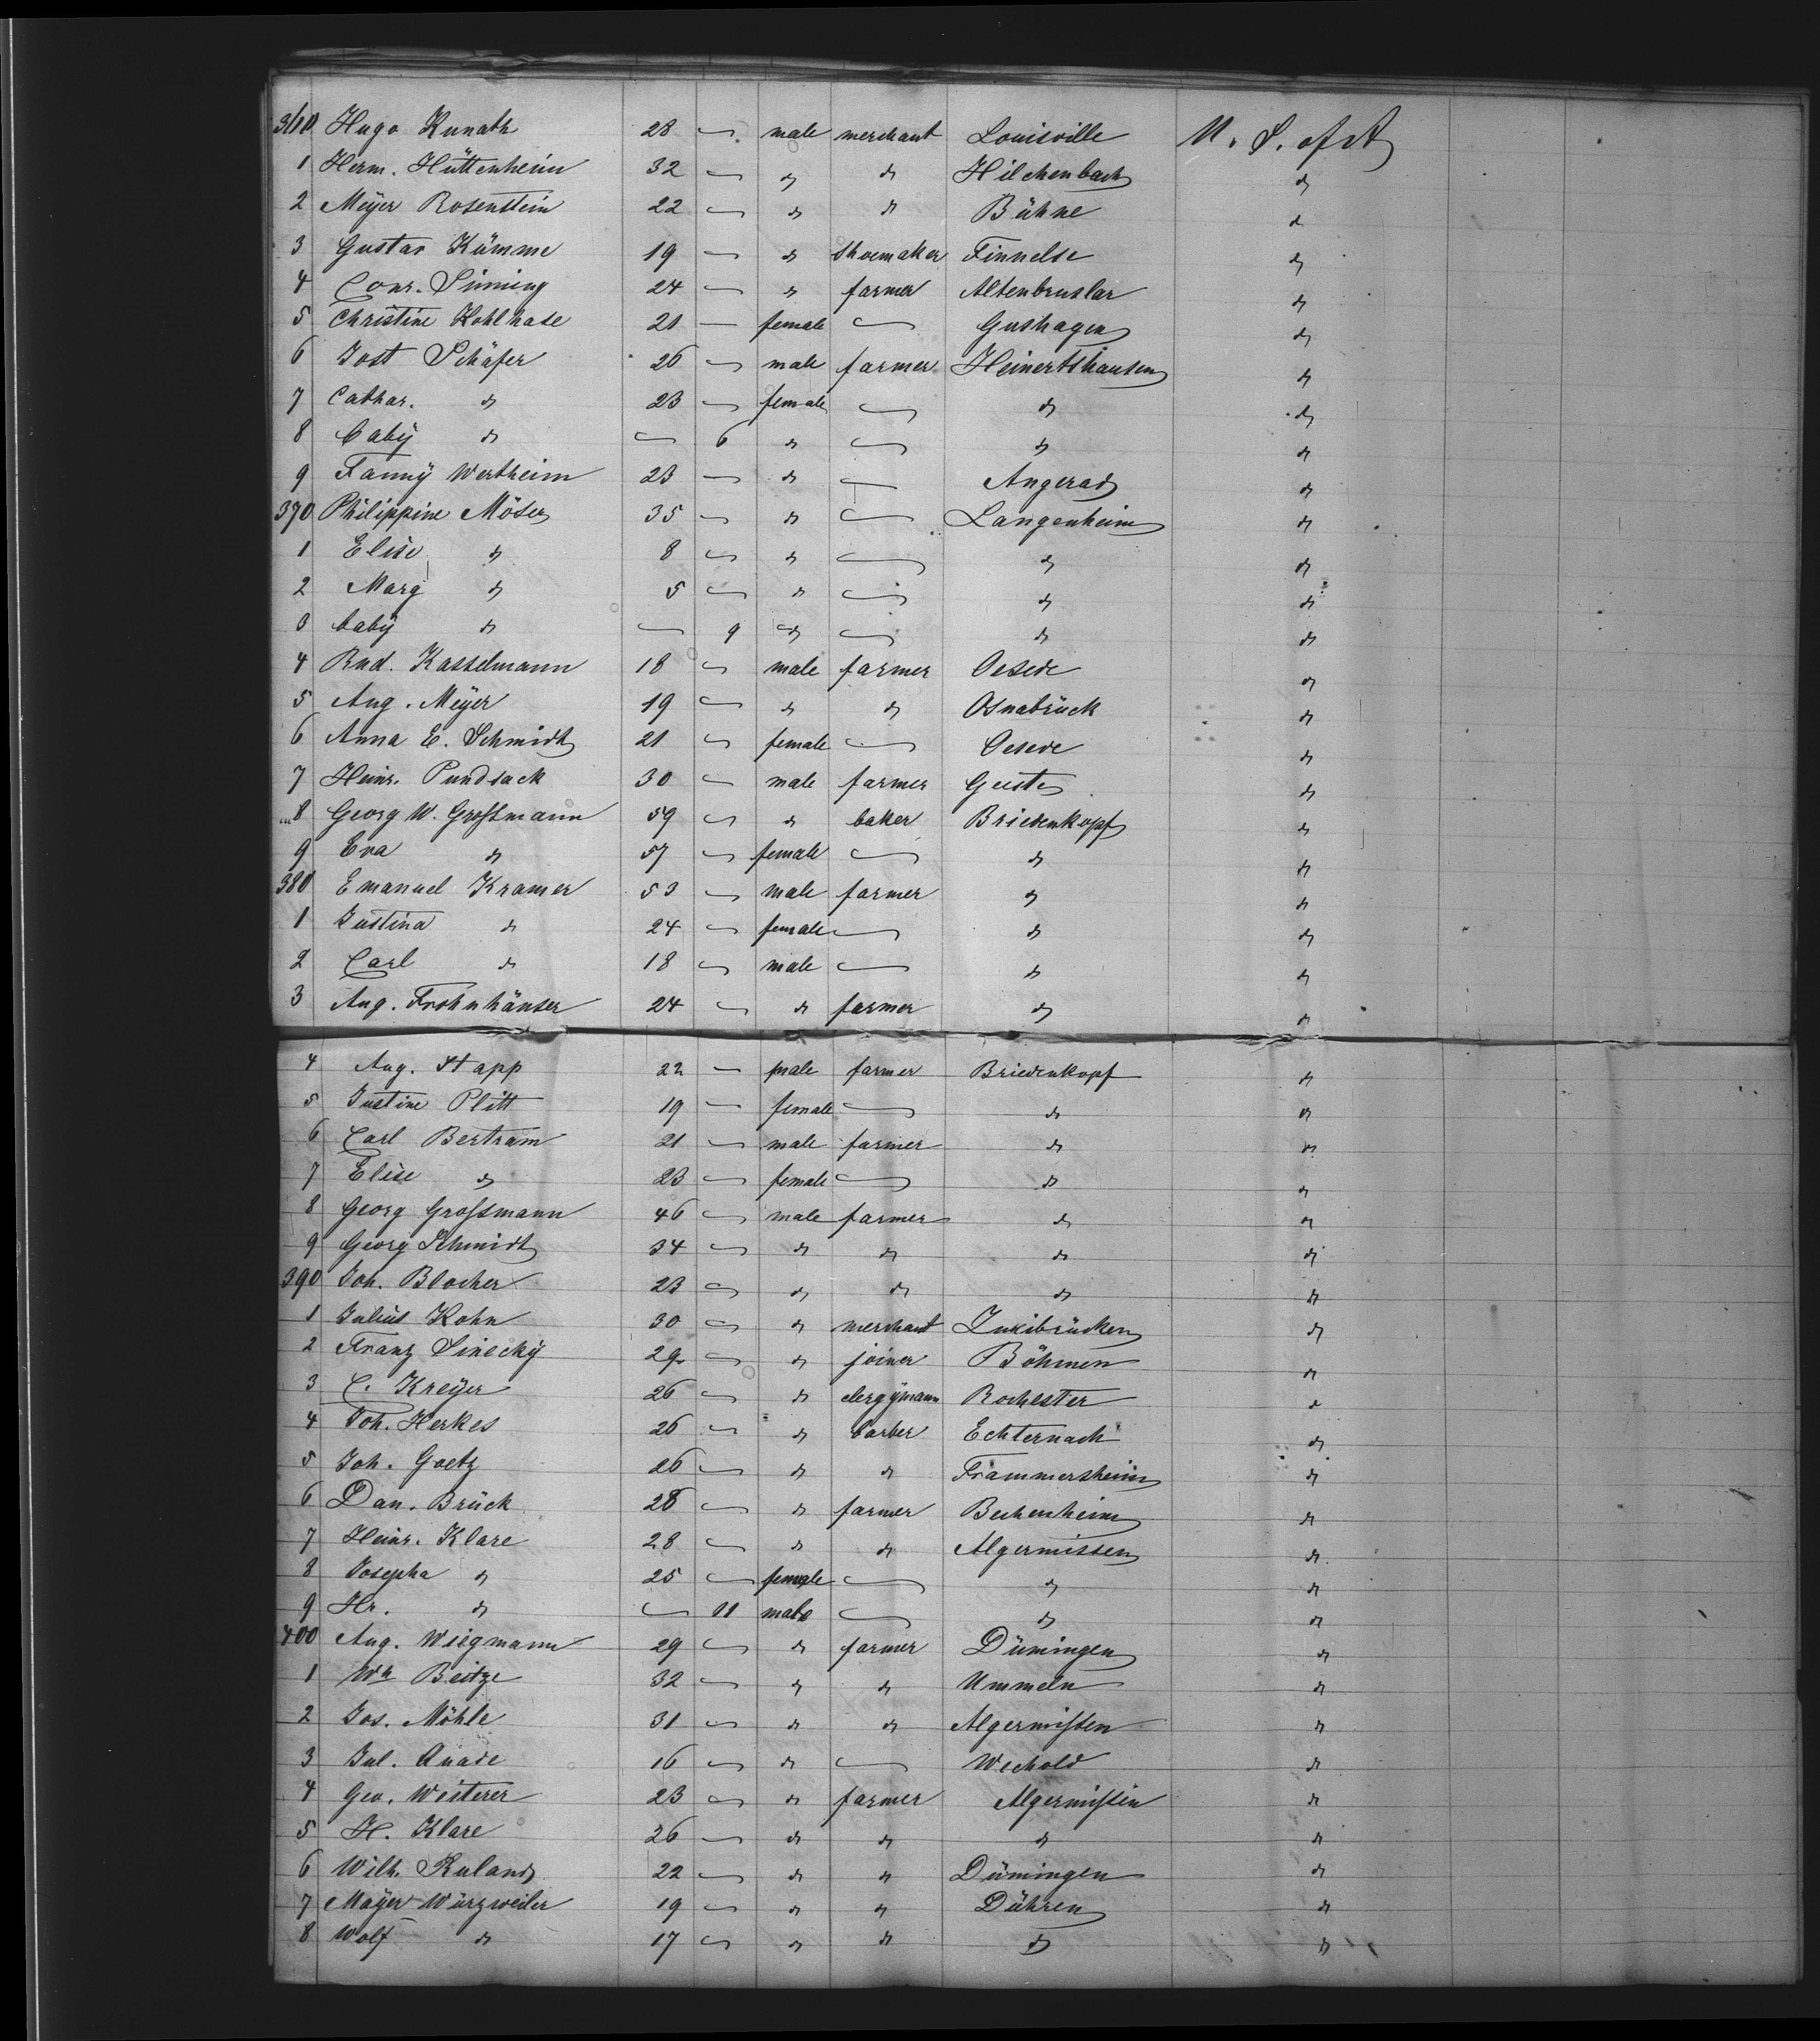 360 Hugo Kunath 28 — male merchant Louisville U. S. of A
1 Herm. Hüttenheim 32 — " " Hilchenbach "
2 Meÿer Rosenstein 22 — " " Bühne "
3 Gustav Kümme 19 — " shoemaker Finnelse "
4 Conr. Sinning 24 — " farmer Altenbruslar "
5 Christine Kohlhase 21 — female — Gushagen "
6 Jost Schäfer 26 — male farmer Heinertshausen "
7 Cathar. " 23 — female — " "
8 baby " — 6 " — " "
9 Fanny Wertheim 23 — " — Angerad "
370 Philippine Möser 35 — " — Langenheim "
1 Elise " 8 — " — " "
2 Marg " 5 — " — " "
3 baby " — 9 " — " "
4 Rud. Kasselmann 18 — male farmer Oesede "
5 Aug. Meÿer 19 — " " Osnabrück "
6 Anna E. Schmidt 21 — female — Oesede "
7 Heinr. Pundsack 30 — male farmer Geeste "
8 Georg W. Großmann 59 — " baker Briedenkopf "
9 Eva " 57 — female — " "
380 Emanuel Kramer 53 — male farmer " "
1 Justina " 24 — female — " "
2 Carl " 18 — male — " "
3 Aug. Frohnhäuser 24 — " farmer " "
4 Aug. Happ 22 — male farmer Briedenkopf "
5 Justine Plitt 19 — female — " "
6 Carl Bertram 21 — male farmer " "
7 Elise " 23 — female — " "
8 Georg Großmann 46 — male farmer " "
9 Georg Schmidt 34 — " " " "
390 Joh. Blocher 23 — " " " "
1 Julius Kohn 30 — " merchant "
2 Franz Sinecky 29 — " joiner Böhmen "
3 C. Kreÿer 26 — " clergÿmann Rochester "
4 Joh. Herkes 26 — " barber Echternach "
5 Joh. Goetz 26 — " " Frammersheim "
6 Dan. Brück 28 — " farmer Bechenheim "
7 Heinr. Klare 28 — " " Algermissen "
8 Josepha " 25 — female — " "
9 Hr. " — 11 male — " "
400 Aug. Wiegmann 29 — " farmer Düningen "
1 Wm Beitze 32 — " " Ummeln "
2 Jos. Möhle 31 — " " Algermißen "
3 Jul. Quade 16 — " — Wechold "
4 Geo. Westerer 23 — " farmer Algermißen "
5 H. Klare 26 — " " " "
6 Wilh. Ruland 22 — " " Düningen "
7 Mayer Würzweiler 19 — " " Dühren "
8 Wolf " 17 — " " " "